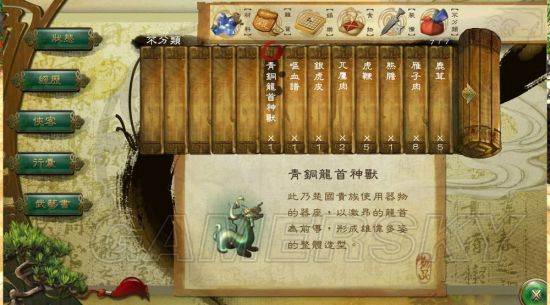 狀態
經歷
俠客
行囊
武藝書
不分類
材料
雜貨
食物
裝備
不分類
青銅龍首神獸
×1
嘔血譜
×1
銀虎皮
×1
兀鷹肉
×2
虎鞭
×5
熊膽
×1
雁子肉
×8
鹿茸
×5
青銅龍首神獸
此乃楚國貴族使用器物
的器座,以激昂的龍首
為前導,形成雄偉多姿
的整體造型。
GAMERSKY